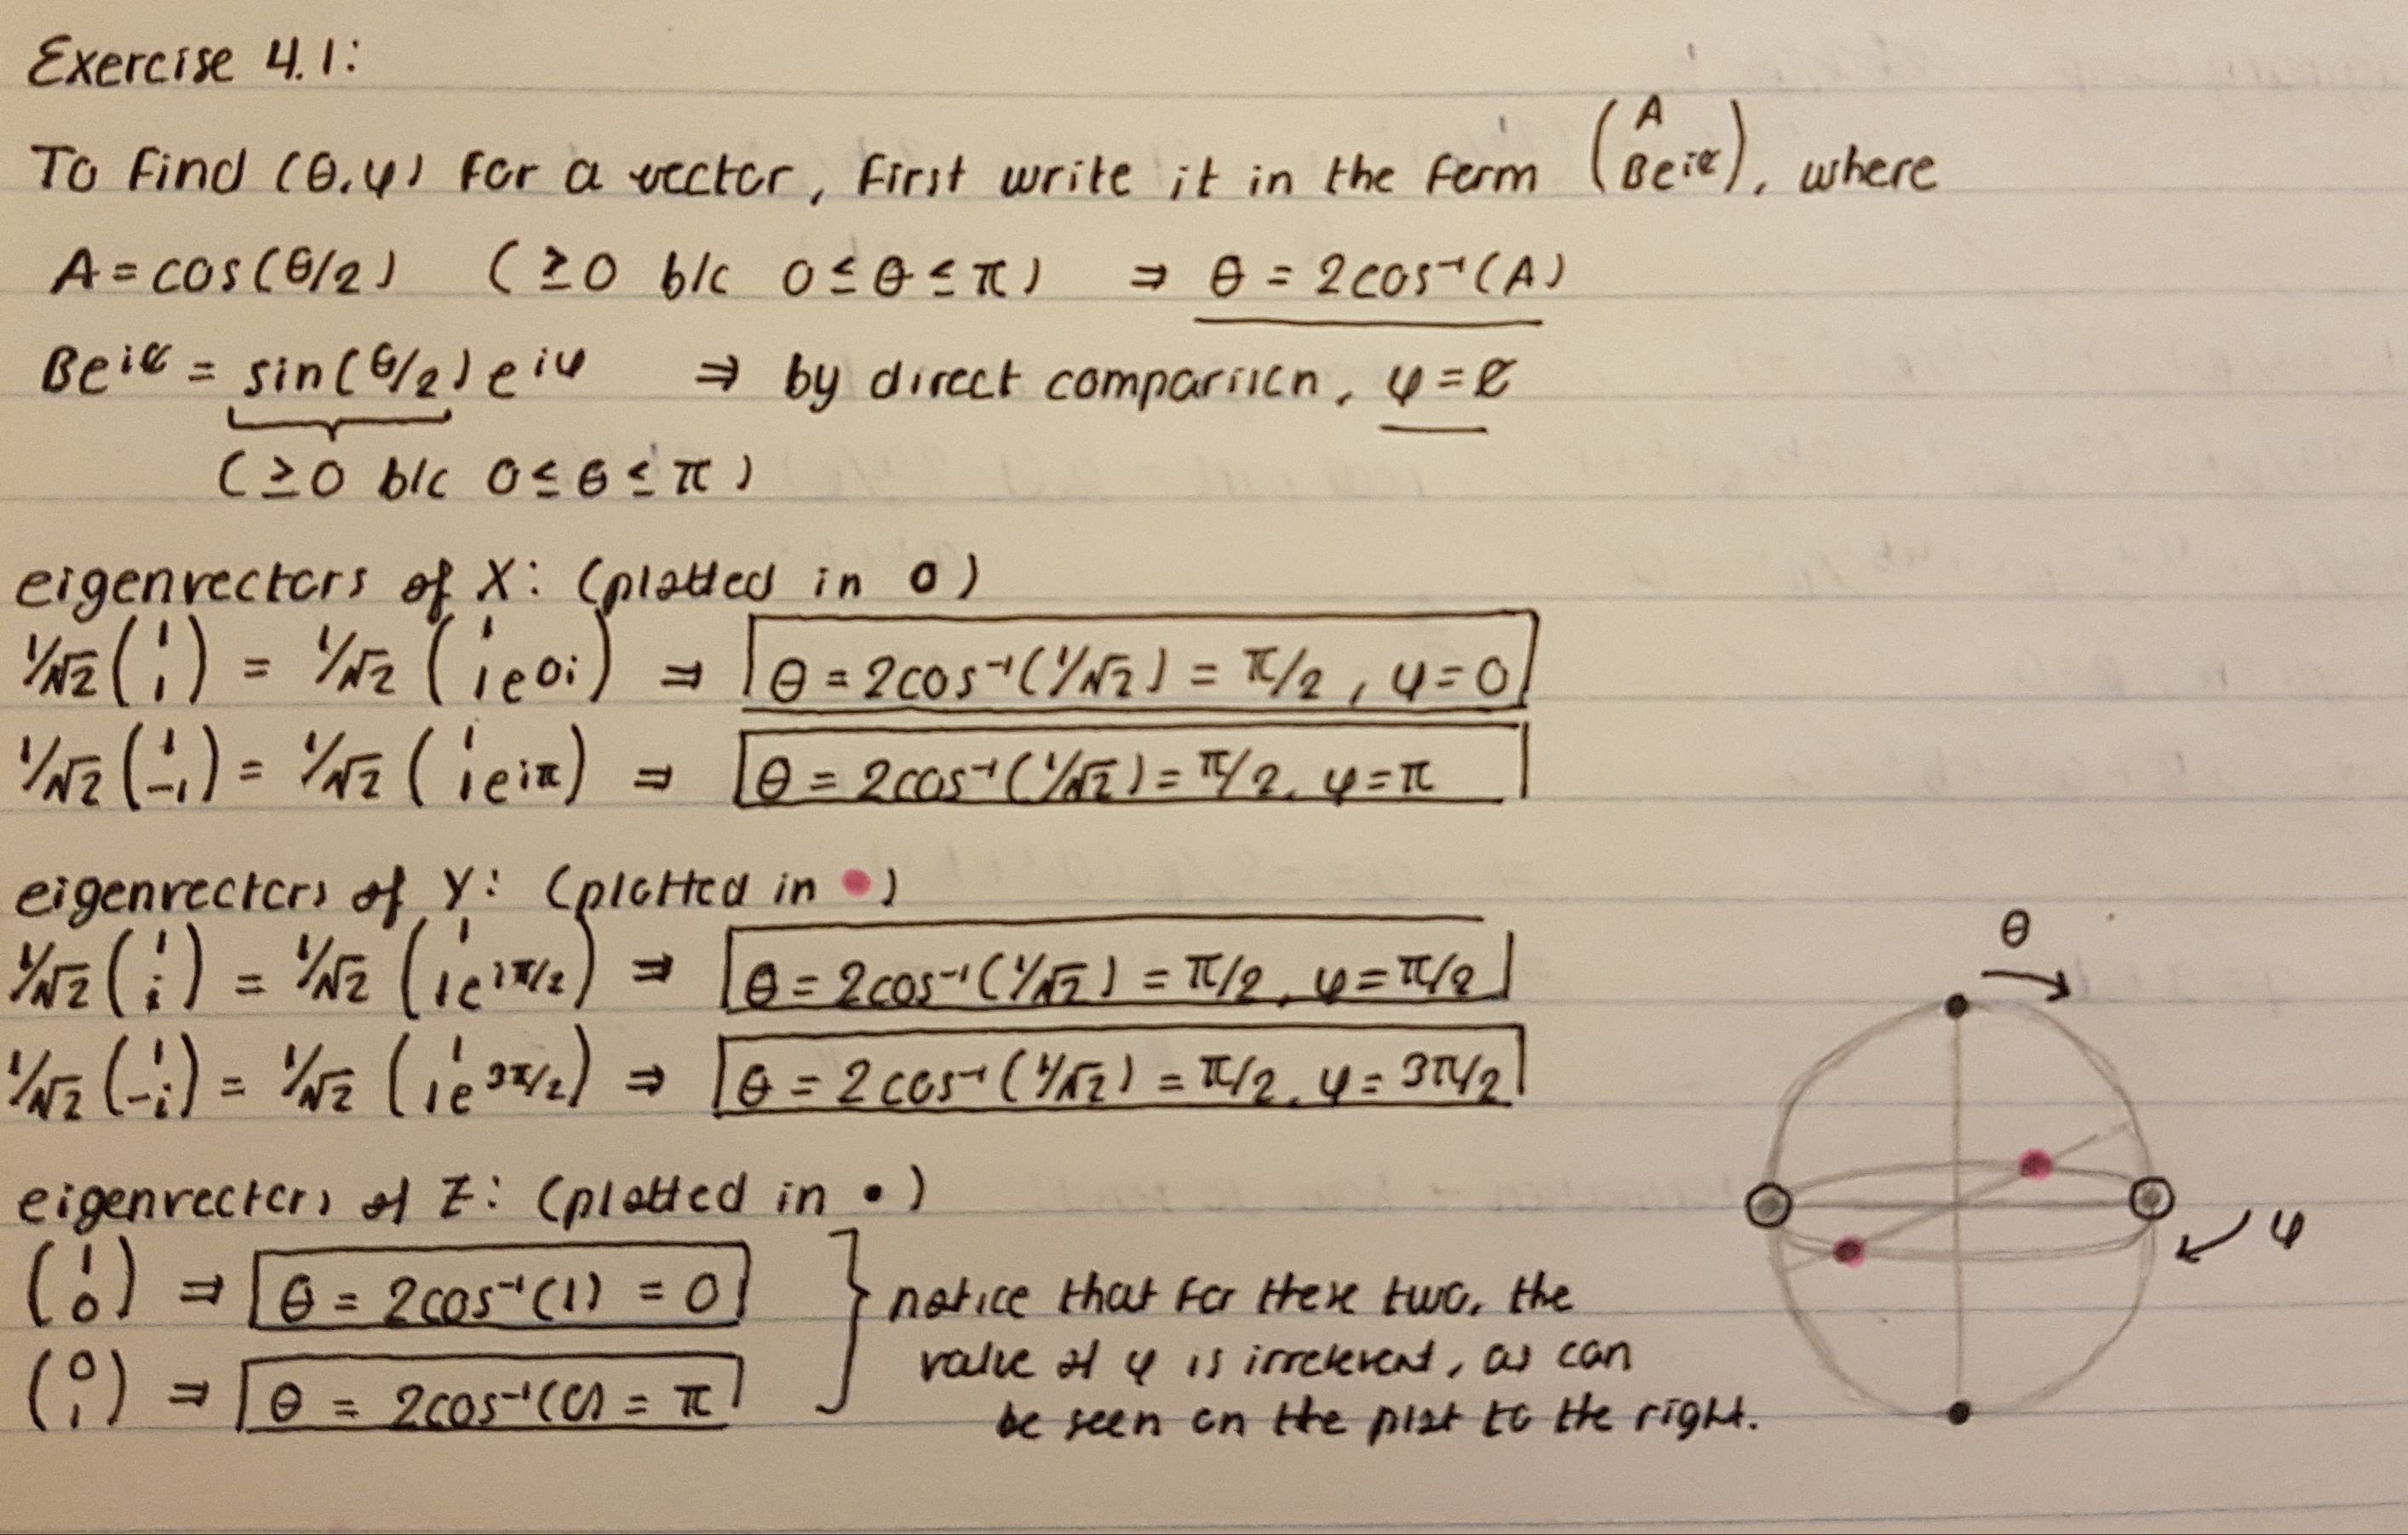 Exercise 4.1:
To find (θ,φ) for a vector, first write it in the form (A Be^{iα}), where
A = cos(θ/2) (≥0 b/c 0≤θ≤π) ⇒ θ = 2cos⁻¹(A)
Be^{iα} = sin(θ/2)e^{iφ} ⇒ by direct comparison, φ=α
(≥0 b/c 0≤θ≤π)
eigenvectors of X: (plotted in o)
1/√2 (1 1) = 1/√2 (1 1e^{0i}) ⇒ θ = 2cos⁻¹(1/√2) = π/2, φ=0
1/√2 (1 -1) = 1/√2 (1 1e^{iπ}) ⇒ θ = 2cos⁻¹(1/√2) = π/2, φ=π
eigenvectors of Y: (plotted in •)
1/√2 (1 i) = 1/√2 (1 1e^{iπ/2}) ⇒ θ = 2cos⁻¹(1/√2) = π/2, φ=π/2
1/√2 (1 -i) = 1/√2 (1 1e^{3π/2}) ⇒ θ = 2cos⁻¹(1/√2) = π/2, φ=3π/2
θ
φ
eigenvectors of Z: (plotted in •)
(1 0) ⇒ θ = 2cos⁻¹(1) = 0
(0 1) ⇒ θ = 2cos⁻¹(0) = π
notice that for these two, the
value of φ is irrelevent, as can
be seen on the plot to the right.